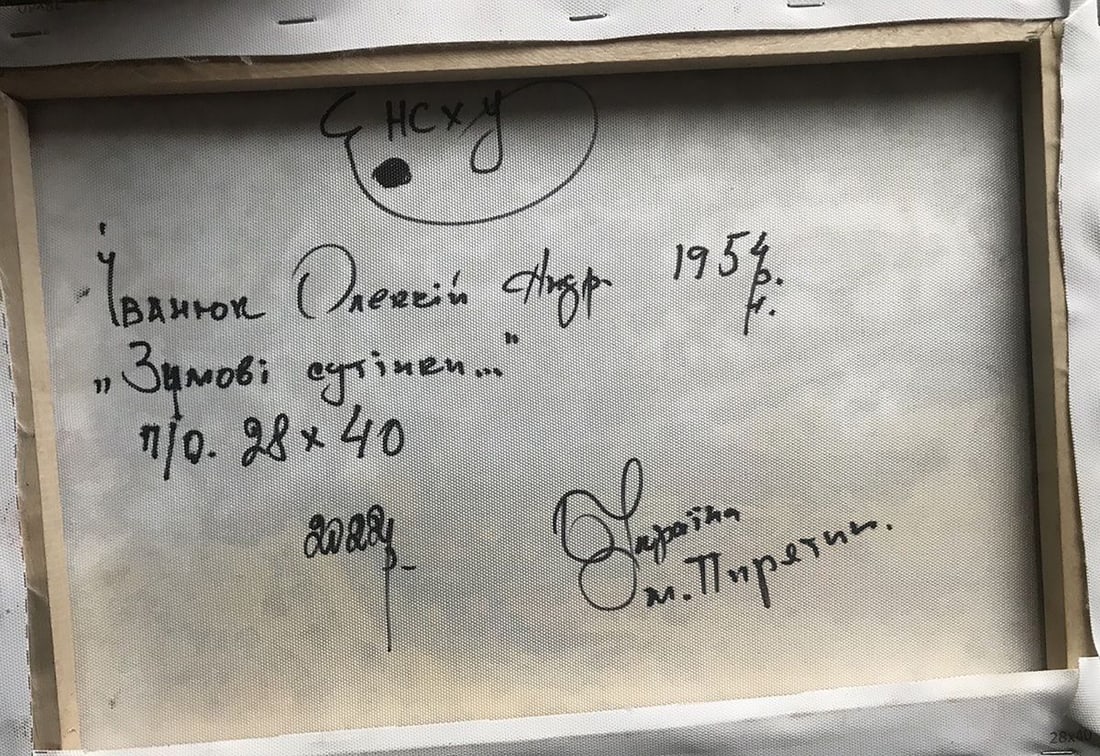 НСХУ
Іванюк Олексій Андр. 1954 р.
н.
„Зимові сутінки..."
п/о. 28 х 40
2022р.
Україна
м. Пирятин.
28x40